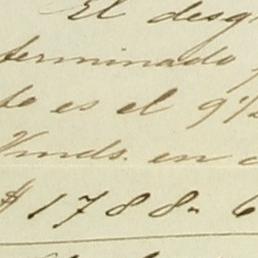 El desg
terminado
te es el 9½
Vmds. en
$ 1788" 6